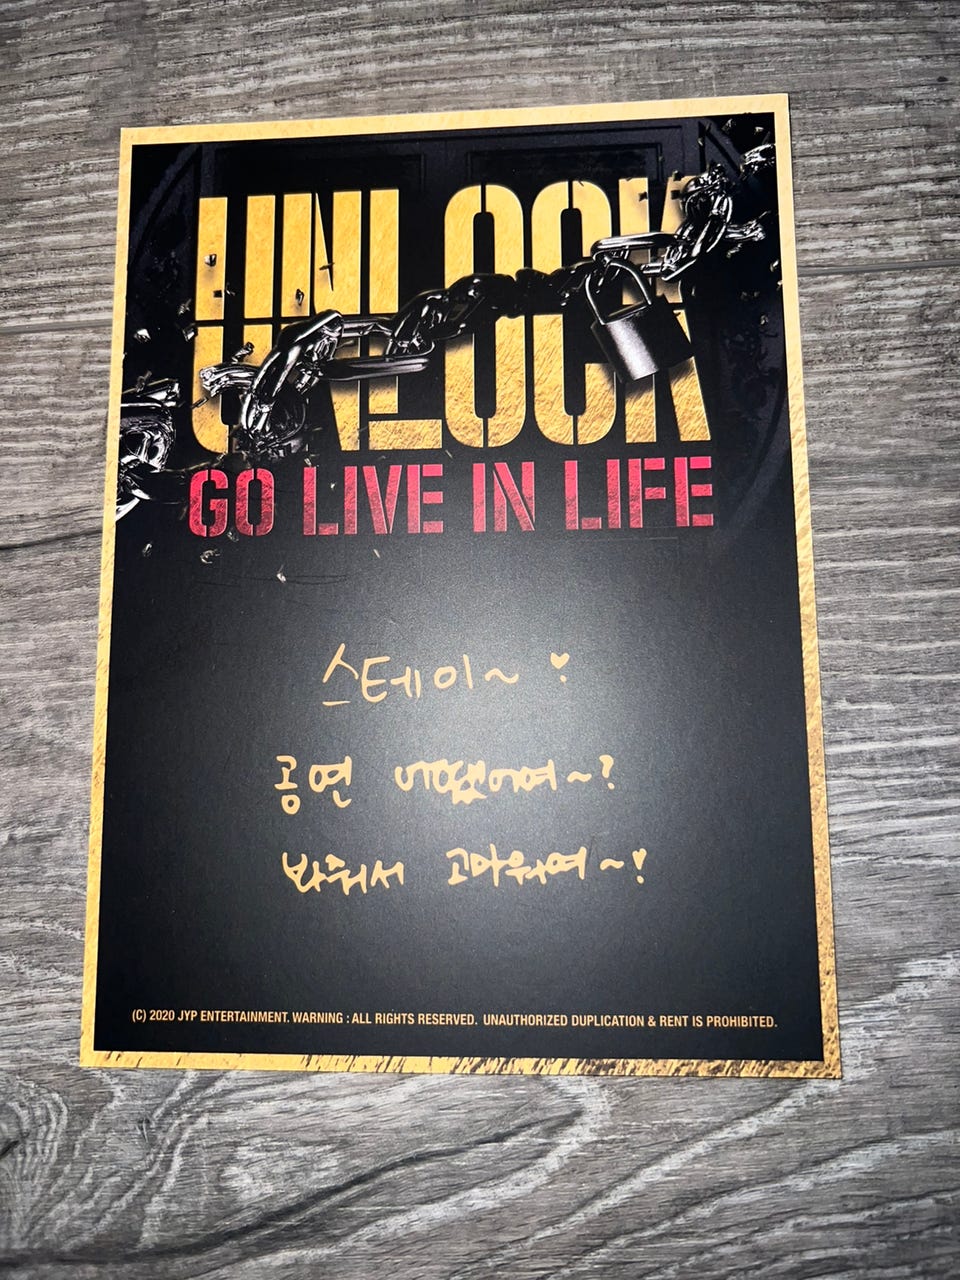 UNLOCK
GO LIVE IN LIFE
스테이~ ♥
공연 어땠어여~?
봐줘서 고마워여~!
(C) 2020 JYP ENTERTAINMENT. WARNING : ALL RIGHTS RESERVED. UNAUTHORIZED DUPLICATION & RENT IS PROHIBITED.